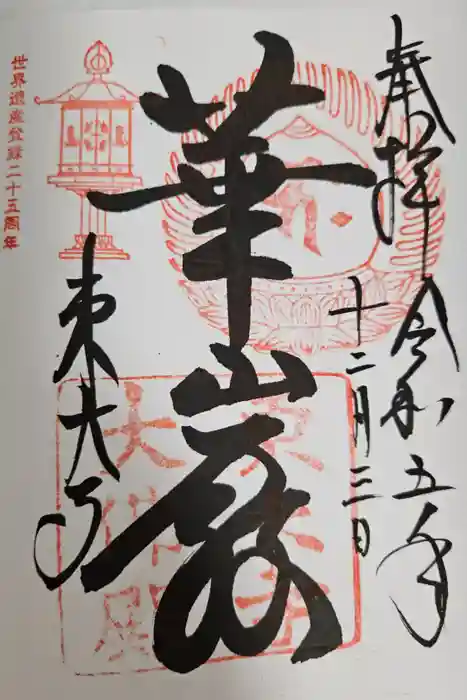 奉拝 令和五年
十二月三日
華嚴
東大寺
世界遺産登録二十五周年
東大寺
大佛殿